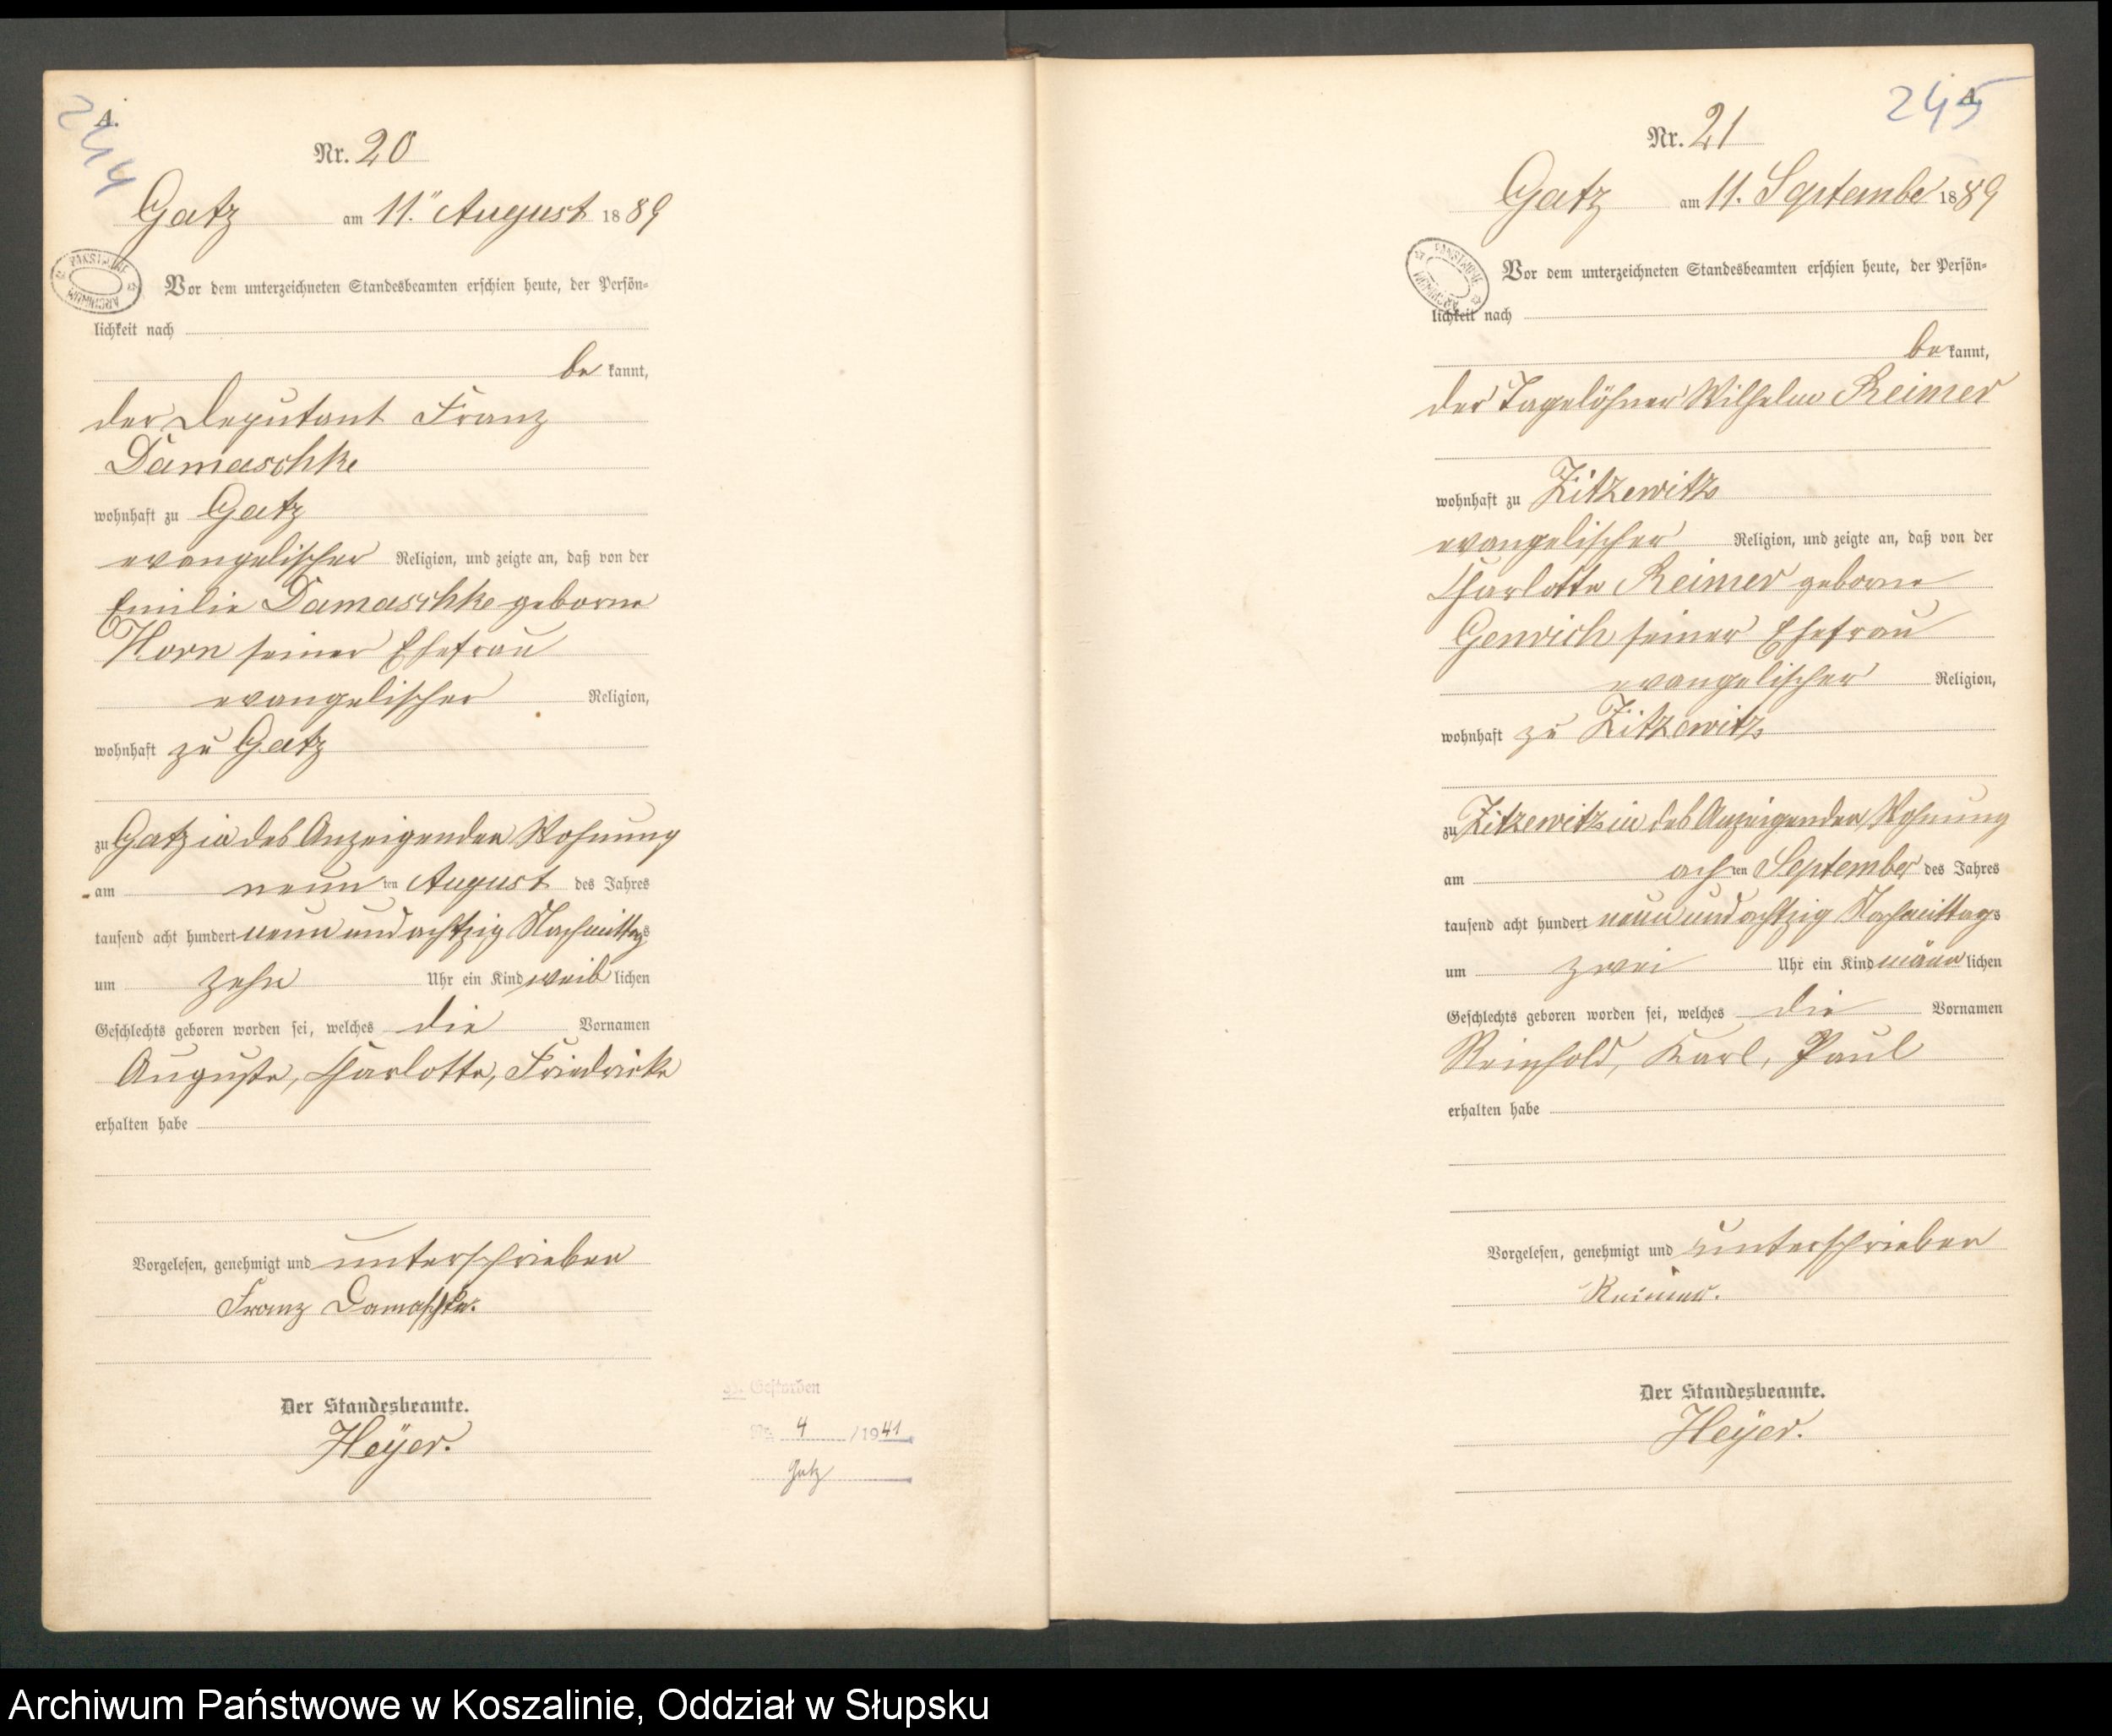 244
A.
Nr. 20
Gatz am 11. August 1889
Vor dem unterzeichneten Standesbeamten erschien heute, der Persön-
lichkeit nach
be kannt,
der Deputant Franz
Damaschke
wohnhaft zu Gatz
evangelischer Religion, und zeigte an, daß von der
Emilie Damaschke geborne
Horn seiner Ehefrau
evangelischer Religion,
wohnhaft zu Gatz
zu Gatz in des Anzeigenden Wohnung
am neun ten August des Jahres
tausend acht hundert neun und achtzig Nachmittags
um zehn Uhr ein Kind weib lichen
Geschlechts geboren worden sei, welches die Vornamen
Auguste, Charlotte, Friedricke
erhalten habe
Vorgelesen, genehmigt und unterschrieben
Franz Damaschke.
Der Standesbeamte.
Heÿer.
Gestorben
Nr. 4 / 1941
Gatz
PAŃSTWOWE ARCHIWUM
245
A.
Nr. 21
Gatz am 11. September 1889
Vor dem unterzeichneten Standesbeamten erschien heute, der Persön-
lichkeit nach
be kannt,
der Tagelöhner Wilhelm Reimer
wohnhaft zu Zitzewitz
evangelischer Religion, und zeigte an, daß von der
Charlotte Reimer geborne
Genrich seiner Ehefrau
evangelischer Religion,
wohnhaft zu Zitzewitz
zu Zitzewitz in des Anzeigenden Wohnung
am ach ten September des Jahres
tausend acht hundert neun und achtzig Nachmittags
um zwei Uhr ein Kind männ lichen
Geschlechts geboren worden sei, welches die Vornamen
Reinhold, Karl, Paul
erhalten habe
Vorgelesen, genehmigt und unterschrieben
Reimer.
Der Standesbeamte.
Heÿer.
PAŃSTWOWE ARCHIWUM
Archiwum Państwowe w Koszalinie, Oddział w Słupsku